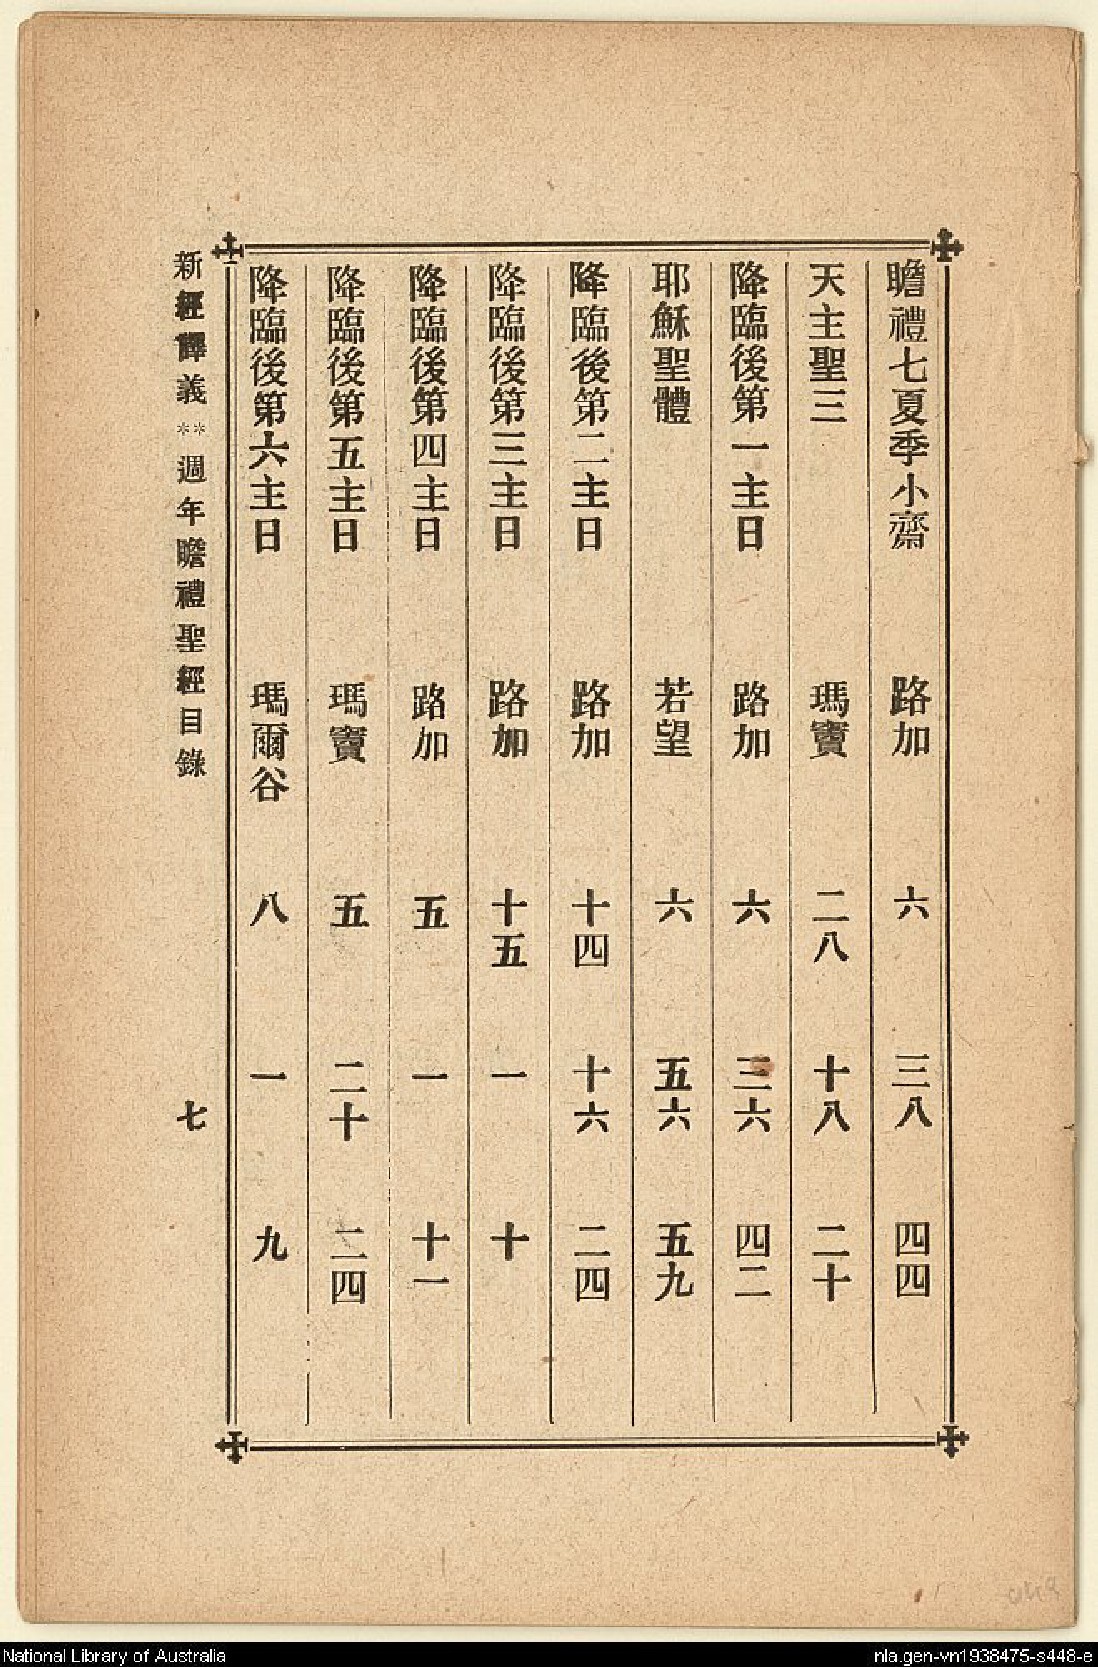 瞻禮七夏季小齋 路加 六 三八 四四
天主聖三 瑪竇 二八 十八 二十
降臨後第一主日 路加 六 三六 四二
耶穌聖體 若望 六 五六 五九
降臨後第二主日 路加 十四 十六 二四
降臨後第三主日 路加 十五 一 十
降臨後第四主日 路加 五 一 十一
降臨後第五主日 瑪竇 五 二十 二四
降臨後第六主日 瑪爾谷 八 一 九
新經譯義**週年瞻禮聖經目錄 七
National Library of Australia
nla.gen-vn1938475-s448-e